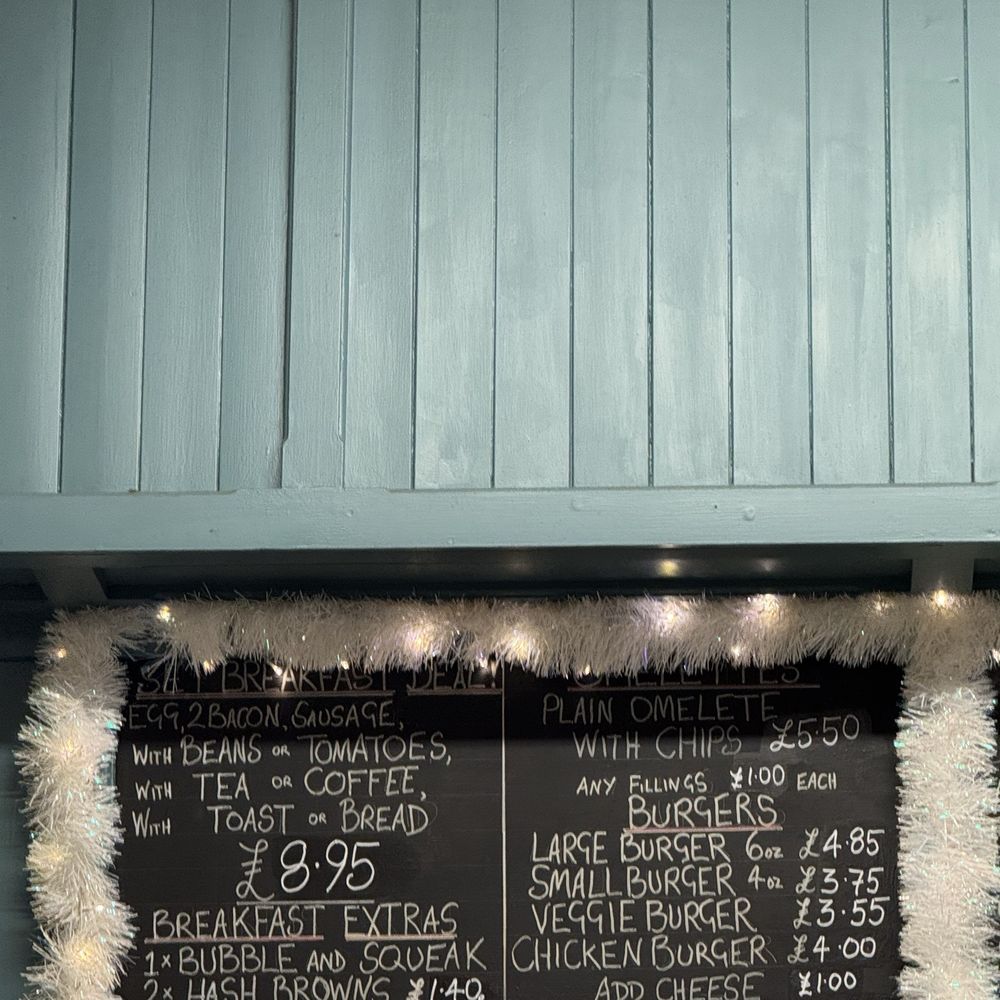 SET BREAKFAST DEAL!
EGG, 2 BACON, SAUSAGE,
WITH BEANS OR TOMATOES,
WITH TEA OR COFFEE,
WITH TOAST OR BREAD
£8.95
BREAKFAST EXTRAS
1x BUBBLE AND SQUEAK
2x HASH BROWNS £1.40
OMELETTES
PLAIN OMELETE
WITH CHIPS £5.50
ANY FILLINGS £1.00 EACH
BURGERS
LARGE BURGER 6oz £4.85
SMALL BURGER 4oz £3.75
VEGGIE BURGER £3.55
CHICKEN BURGER £4.00
ADD CHEESE £1.00